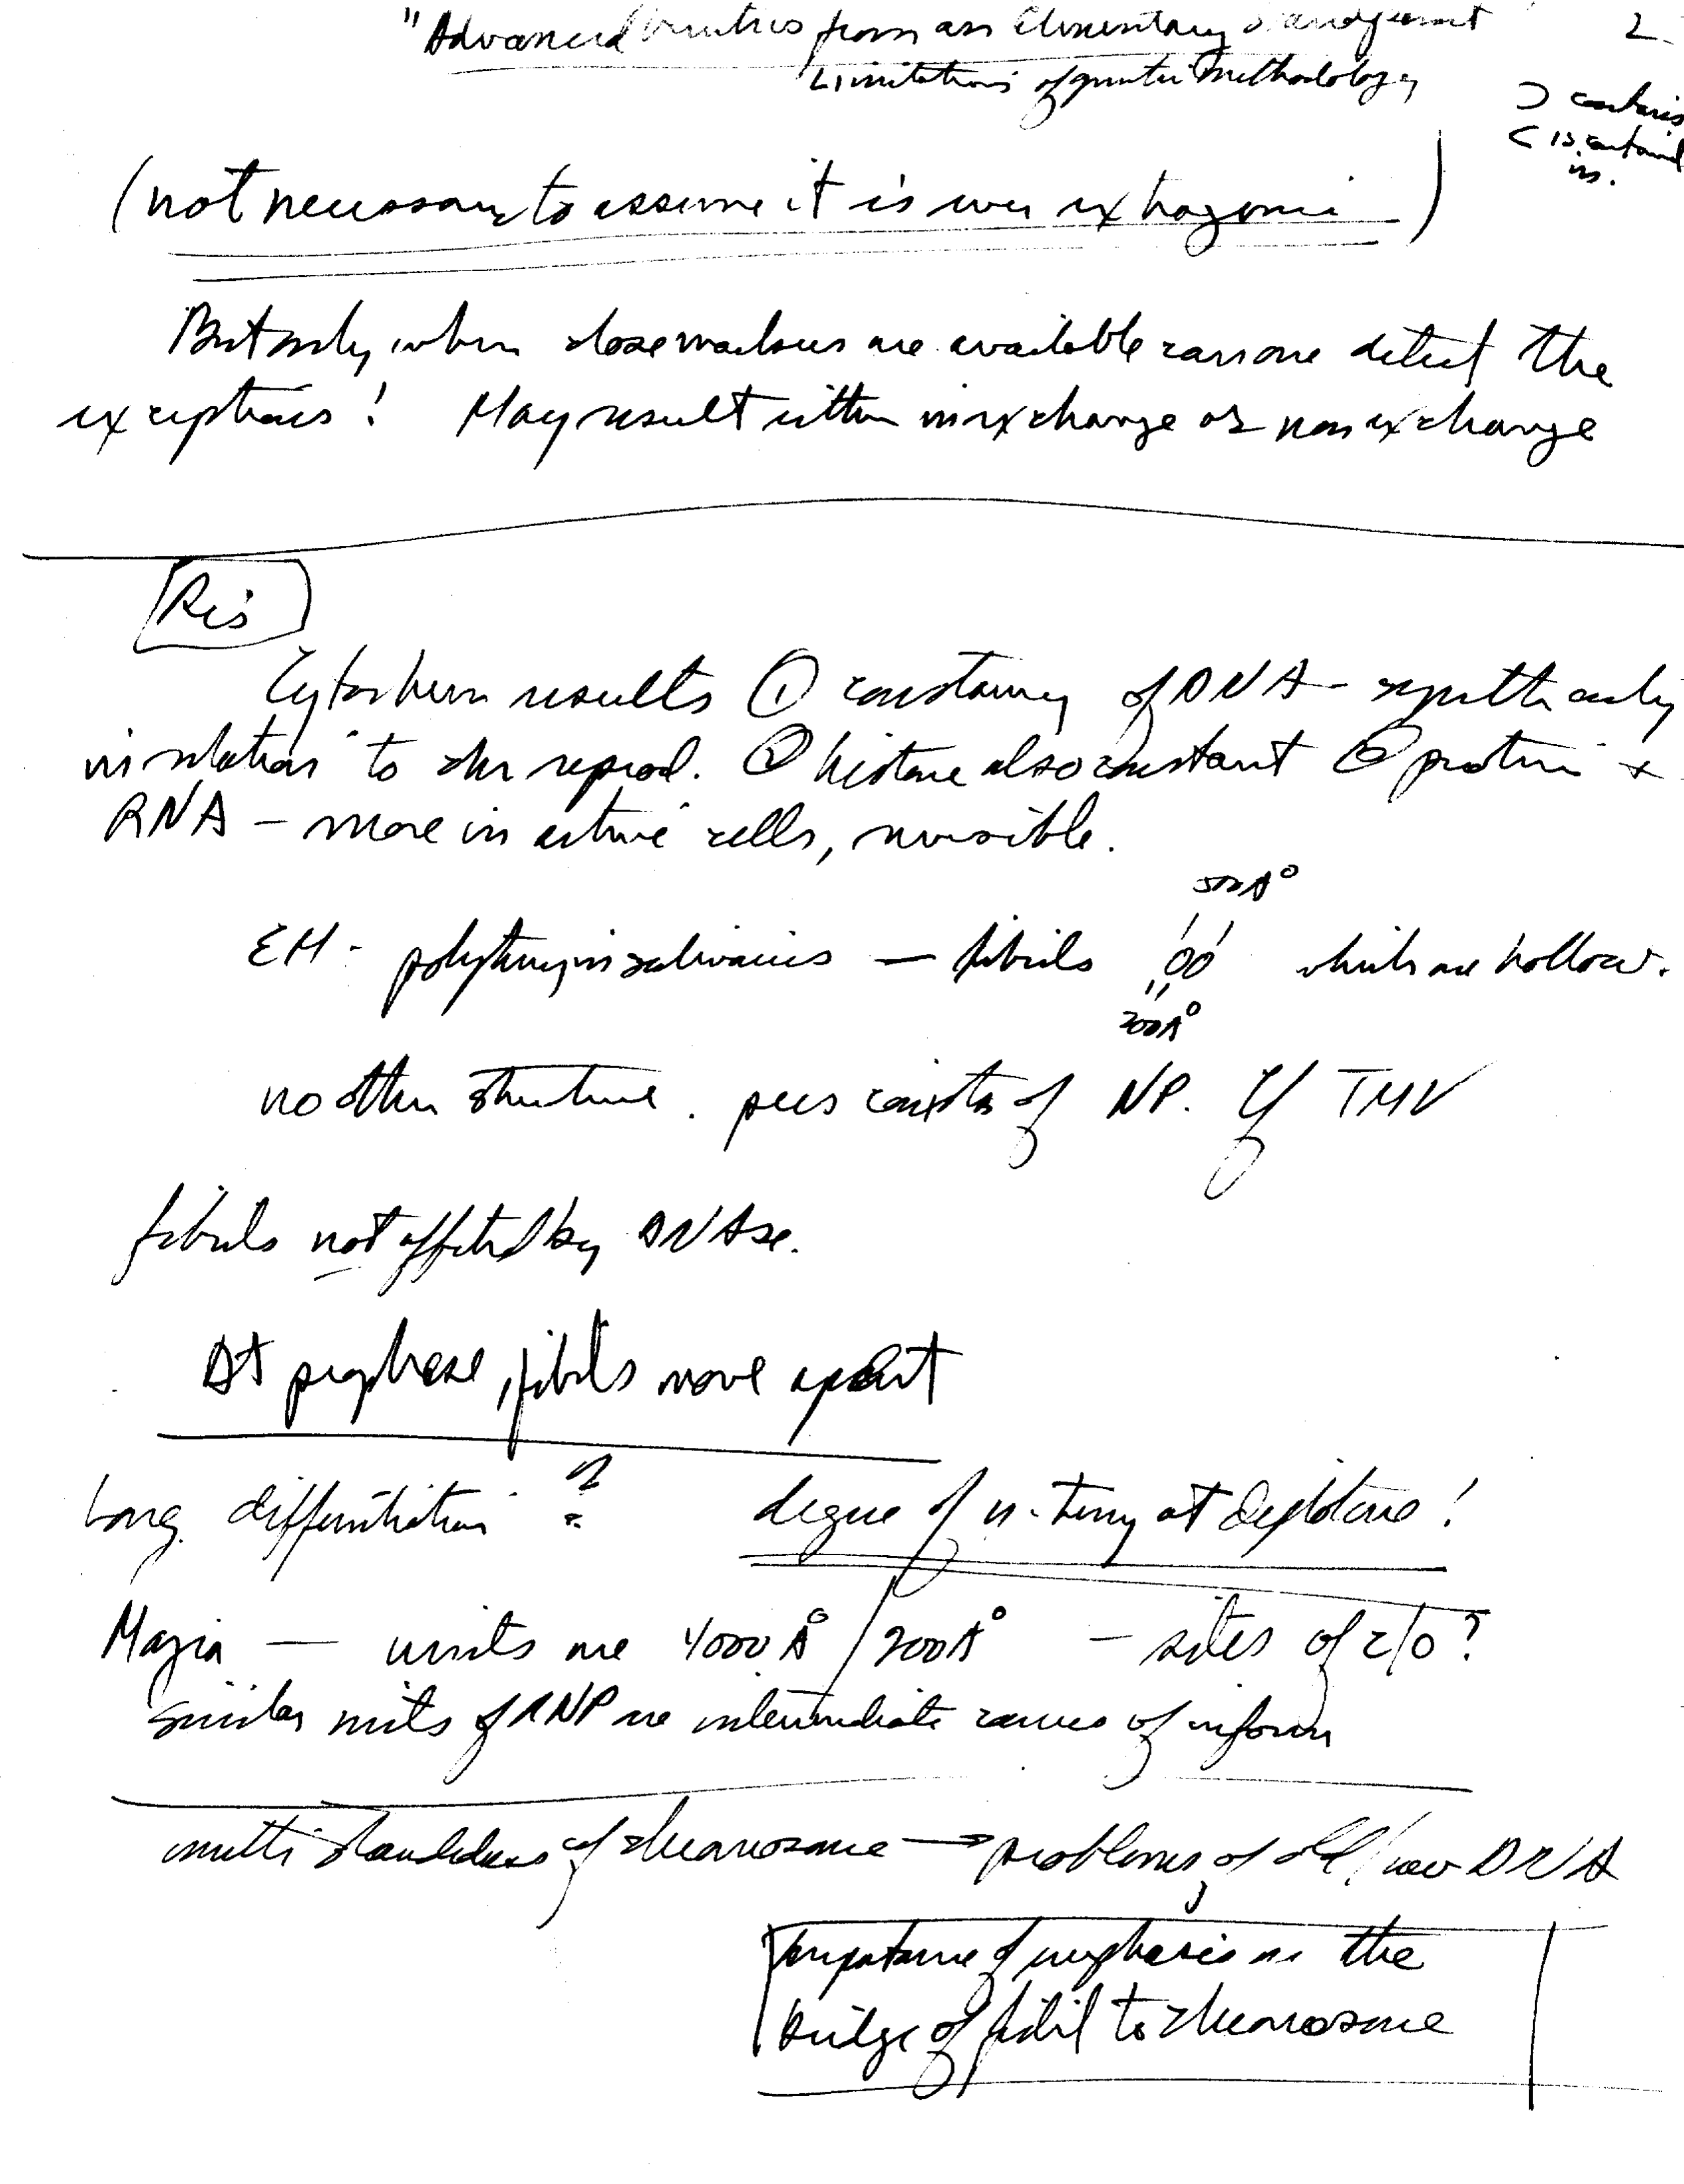 "Advanced Genetics from an Elementary Standpoint" 2
Limitations of genetic methodology
⊃ contains
⊂ is contained
in.
(not necessary to assume it is ever extragenic)
But only when close markers are available can one detect the
exceptions! May result either in exchange or non exchange
Ris
Cytochem results ① constancy of DNA - synth only
in relation to chr reprod. ② histone also constant ③ protein +
RNA - more in active cells, .
500Å
EM - polyteny in salivaries — fibrils which are hollow.
200Å
no other structure. consists of NP. Cf TMV
fibrils not affected by DNAse.
At prophase, fibrils move apart
Long. differentiation ?
degree of n-teny at diplotene!
Mazia — units are 4000Å / 200Å - sites of c/o?
similar units of RNP are intermediate carriers of inform
multi strandedness of chromosome → problems of old/new DNA
Importance of emphasis on the
bridge of fibril to chromosome